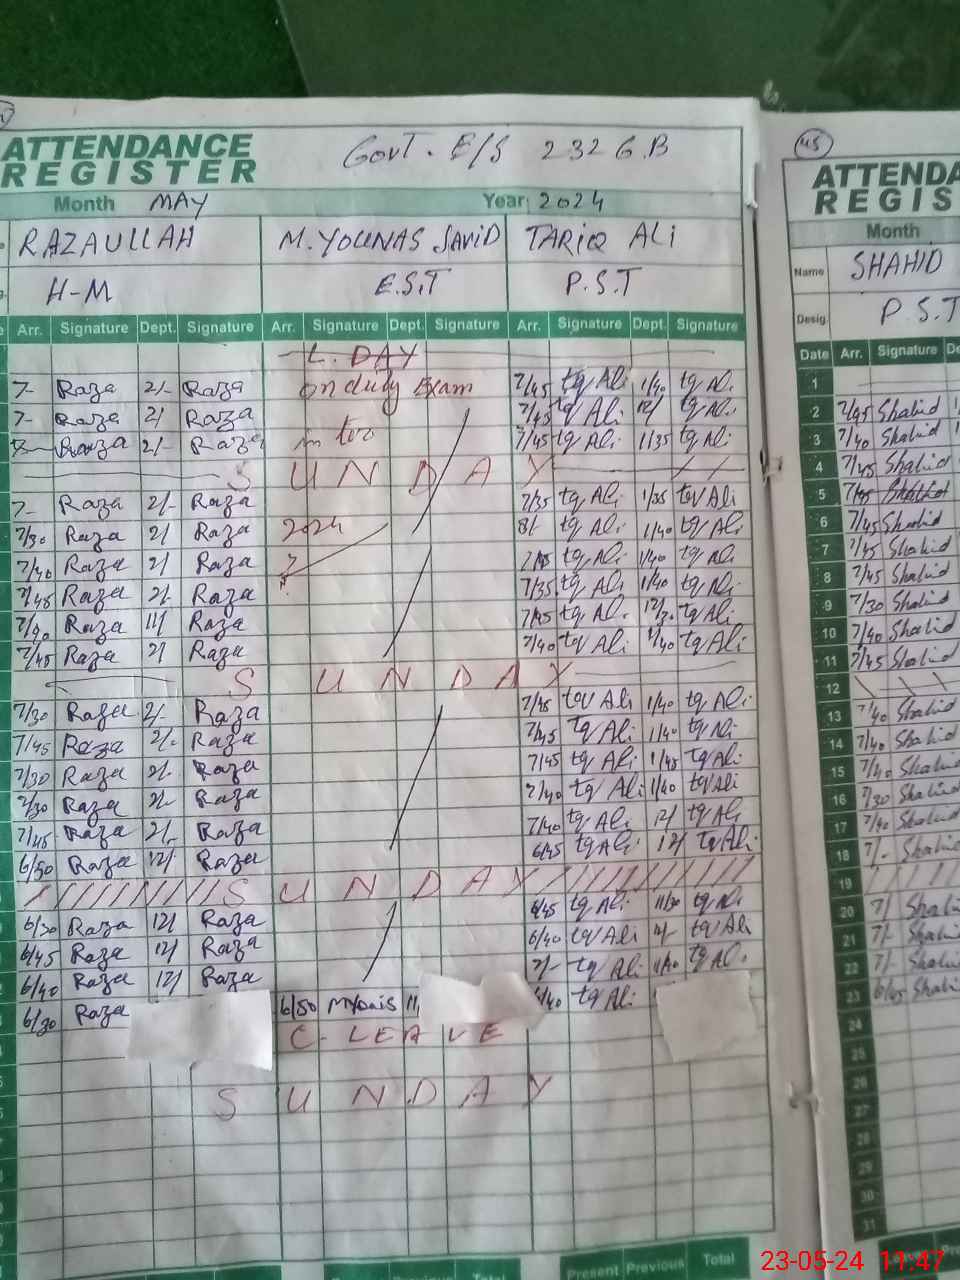 ATTENDANCE REGISTER
GOVT. E/S 232 G.B
Month MAY Year: 2024
RAZAULLAH M. YOUNAS JAVID TARIQ ALI
H-M E.S.T P.S.T
Arr. Signature Dept. Signature Arr. Signature Dept. Signature Arr. Signature Dept. Signature
L. DAY
7- Raza 2/- Raza on duty Exam 7/45 tq Ali 1/40 tq Ali
7- Raza 2/ Raza 7/45 tq Ali 12/ tq Ali
7- Raza 2/- Raza 7/45 tq Ali 1/35 tq Ali
S U N D A Y
7- Raza 2/- Raza 7/35 tq Ali 1/35 tq Ali
7/30 Raza 2/ Raza 2024 8/- tq Ali 1/40 tq Ali
7/40 Raza 2/ Raza tq Ali 1/40 tq Ali
7/45 Raza 2/- Raza 7/35 tq Ali 1/40 tq Ali
Raza 11/ Raza tq Ali 12/30 tq Ali
7/45 Raza 2/ Raza 7/40 tq Ali 1/40 tq Ali
S U N D A Y
7/30 Raza 2/- Raza 7/45 tq Ali 1/40 tq Ali
7/45 Raza 2/- Raza 7/45 tq Ali 1/40 tq Ali
7/30 Raza 2/- Raza 7/45 tq Ali 1/45 tq Ali
7/30 Raza 2/- Raza 7/40 tq Ali 1/40 tq Ali
7/45 Raza 2/- Raza 7/40 tq Ali 12/ tq Ali
6/50 Raza 12/- Raza 6/45 tq Ali 12/ tq Ali
S U N D A Y
6/30 Raza 12/ Raza 6/45 tq Ali 11/30 tq Ali
6/45 Raza 12/ Raza 6/40 tq Ali tq Ali
6/40 Raza 12/ Raza 7/- tq Ali 11/40 tq Ali
6/30 Raza 6/50 MYounis 11/ 6/40 tq Ali
C- LEAVE
S U N D A Y
Present Previous Total
45
ATTENDA
REGIS
Month
Name SHAHID
Desig. P.S.T
Date Arr. Signature De
1
2 7/45 Shahid
3 7/40 Shahid
4 7/45 Shahid
5
6 7/45 Shahid
7 7/45 Shahid
8 7/45 Shahid
9 7/30 Shahid
10 7/40 Shahid
11 7/45 Shahid
12
13 7/40 Shahid
14 7/40 Shahid
15 7/40 Shahid
16 7/30 Shahid
17 7/40 Shahid
18 7/- Shahid
19
20 7/ Shahid
21 7/- Shahid
22 7/- Shahid
23 6/45 Shahid
24
25
26
27
28
29
30
31
23-05-24 11:47